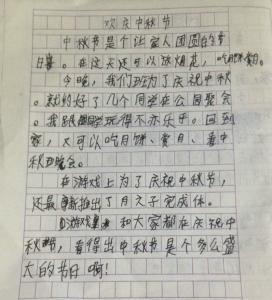 欢庆中秋节
中秋节是个让家人团圆的节
日。在这天还可以放烟花,吃月饼赏月。
今晚,我们班为了庆祝中秋
。就约好了几个同学在公园聚会
。我跟同学玩得不亦乐乎。回到
家,又可以吃月饼、赏月、看中
秋晚会。
在游戏上为了庆祝中秋节,
还最新推出了月之子完成体。
游戏里 和大家都在庆祝中
秋节,看得出中秋节是个多么盛
大的节日啊!